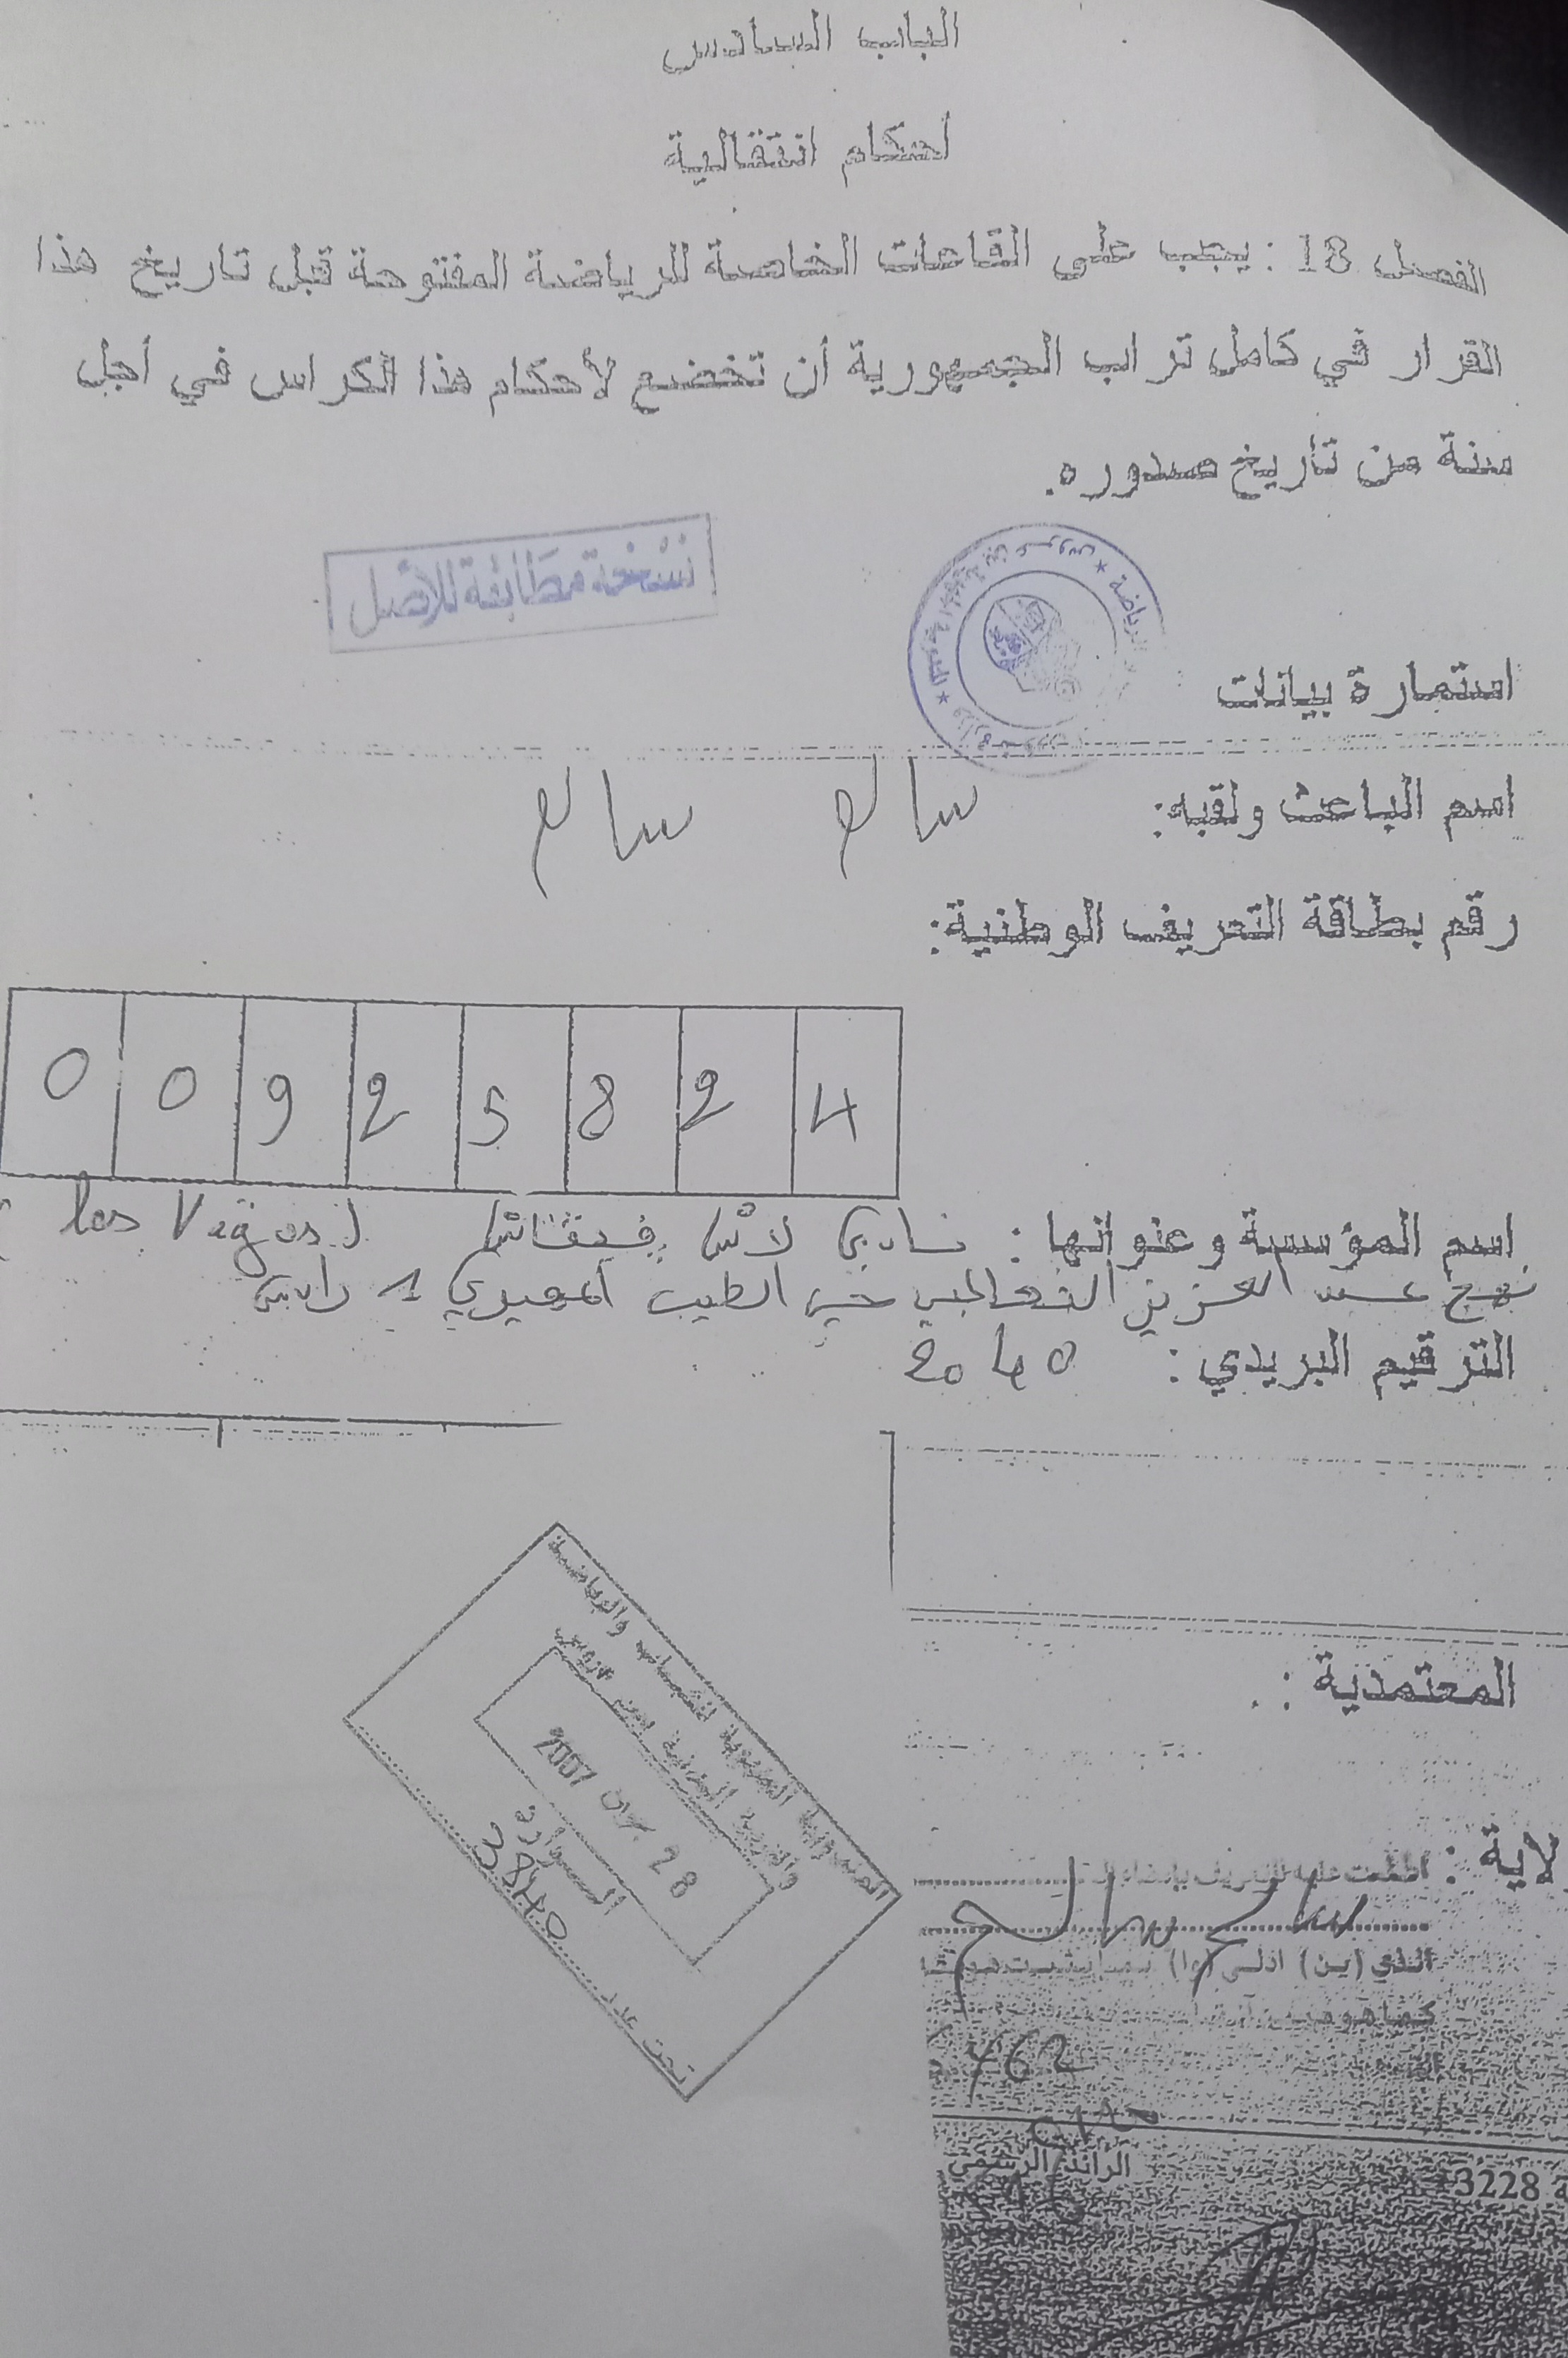 الباب السادس
أحكام انتقالية
الفصل 18 : يجب على القاعات الخاصة للرياضة المفتوحة قبل تاريخ هذا
القرار في كامل تراب الجمهورية أن تخضع لأحكام هذا الكراس في أجل
سنة من تاريخ صدوره.
نسخة مطابقة للأصل
استمارة بيانات
اسم الباعث ولقبه: سالم سالم
رقم بطاقة التعريف الوطنية:
0 0 9 2 5 8 2 4
اسم المؤسسة وعنوانها: نادي لاس فيقاس (las Vegas)
نهج عبد العزيز الثعالبي حي الطيب المهيري 1 رادس
الترقيم البريدي: 2040
المندوبية الجهوية للشباب والرياضة
والتربية البدنية ببن عروس
28 جوان 2007
الواردة
تحت عدد 3840
المعتمدية :
لاية :
الذي (ين) ادلى (وا)
الرائد الرسمي
3228